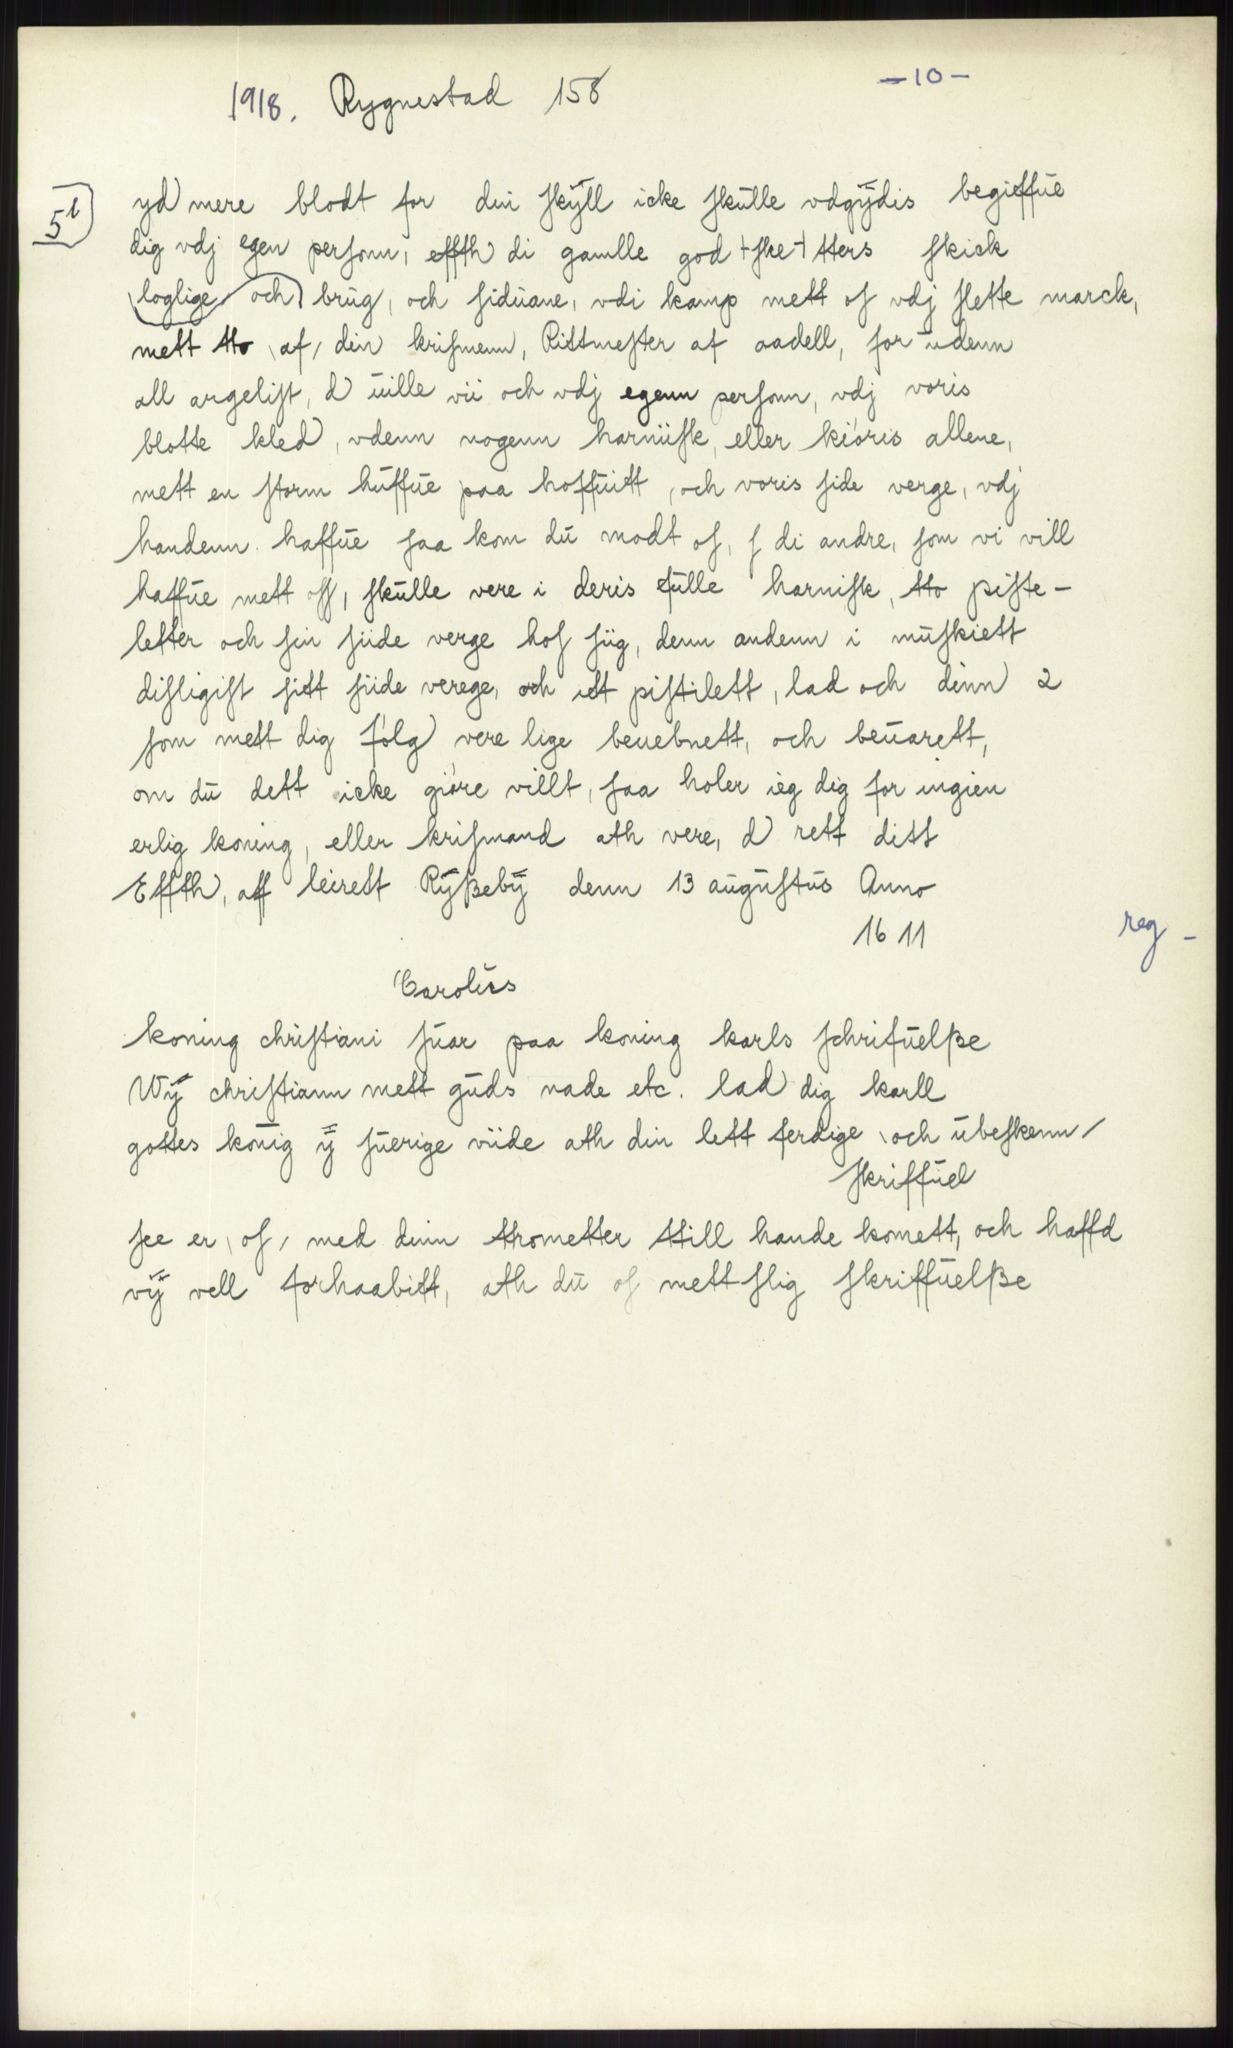 1918. Rygnestad 158
-10-
5b
yd mere blodt for din skÿll icke skulle vdgÿdis begieffue
dig vdj egen personn, effth di gamlle god -ske- tters skick
loglige och brug, och siduane, vdi kamp mett os vdj slette marck,
mett tto af, din krismenn, Rittmester af aadell, for udenn
all argelist, d uille vii och vdj egenn personn, vdj voris
blotte kled, vdenn nogenn harniisk, eller kióris allene,
mett en storm huffue paa hoffuitt, och voris side verge, vdj
handenn. haffue saa kom du modt os, s di andre, som vi vill
haffue mett oss, skulle vere i deris fulle harnisk, tto piste-
letter och sin siide verge hos siig, denn andenn i muskiett
disligist sitt siide verege, och itt pistilett, lad och dinn 2
som mett dig fólg vere lige beuebnett, och beuarett,
om du dett icke gióre villt, saa holer ieg dig for ingien
erlig koning, eller krismand ath vere, d rett ditt
Effth, aff leirett Rÿßebÿ denn 13 augustus Anno
1611
reg -
Carolus
koning christiani suar paa koning karls schrifuelße
Wÿ christiann mett guds nade etc. lad dig karll
gottes konig ÿ suerige viide ath din lett ferdige och ubeskenn
skriffuel
see er os, med dinn ttrometter ttill hande komett, och haffd
vÿ vell forhaabitt, ath du os mett slig skriffuelße